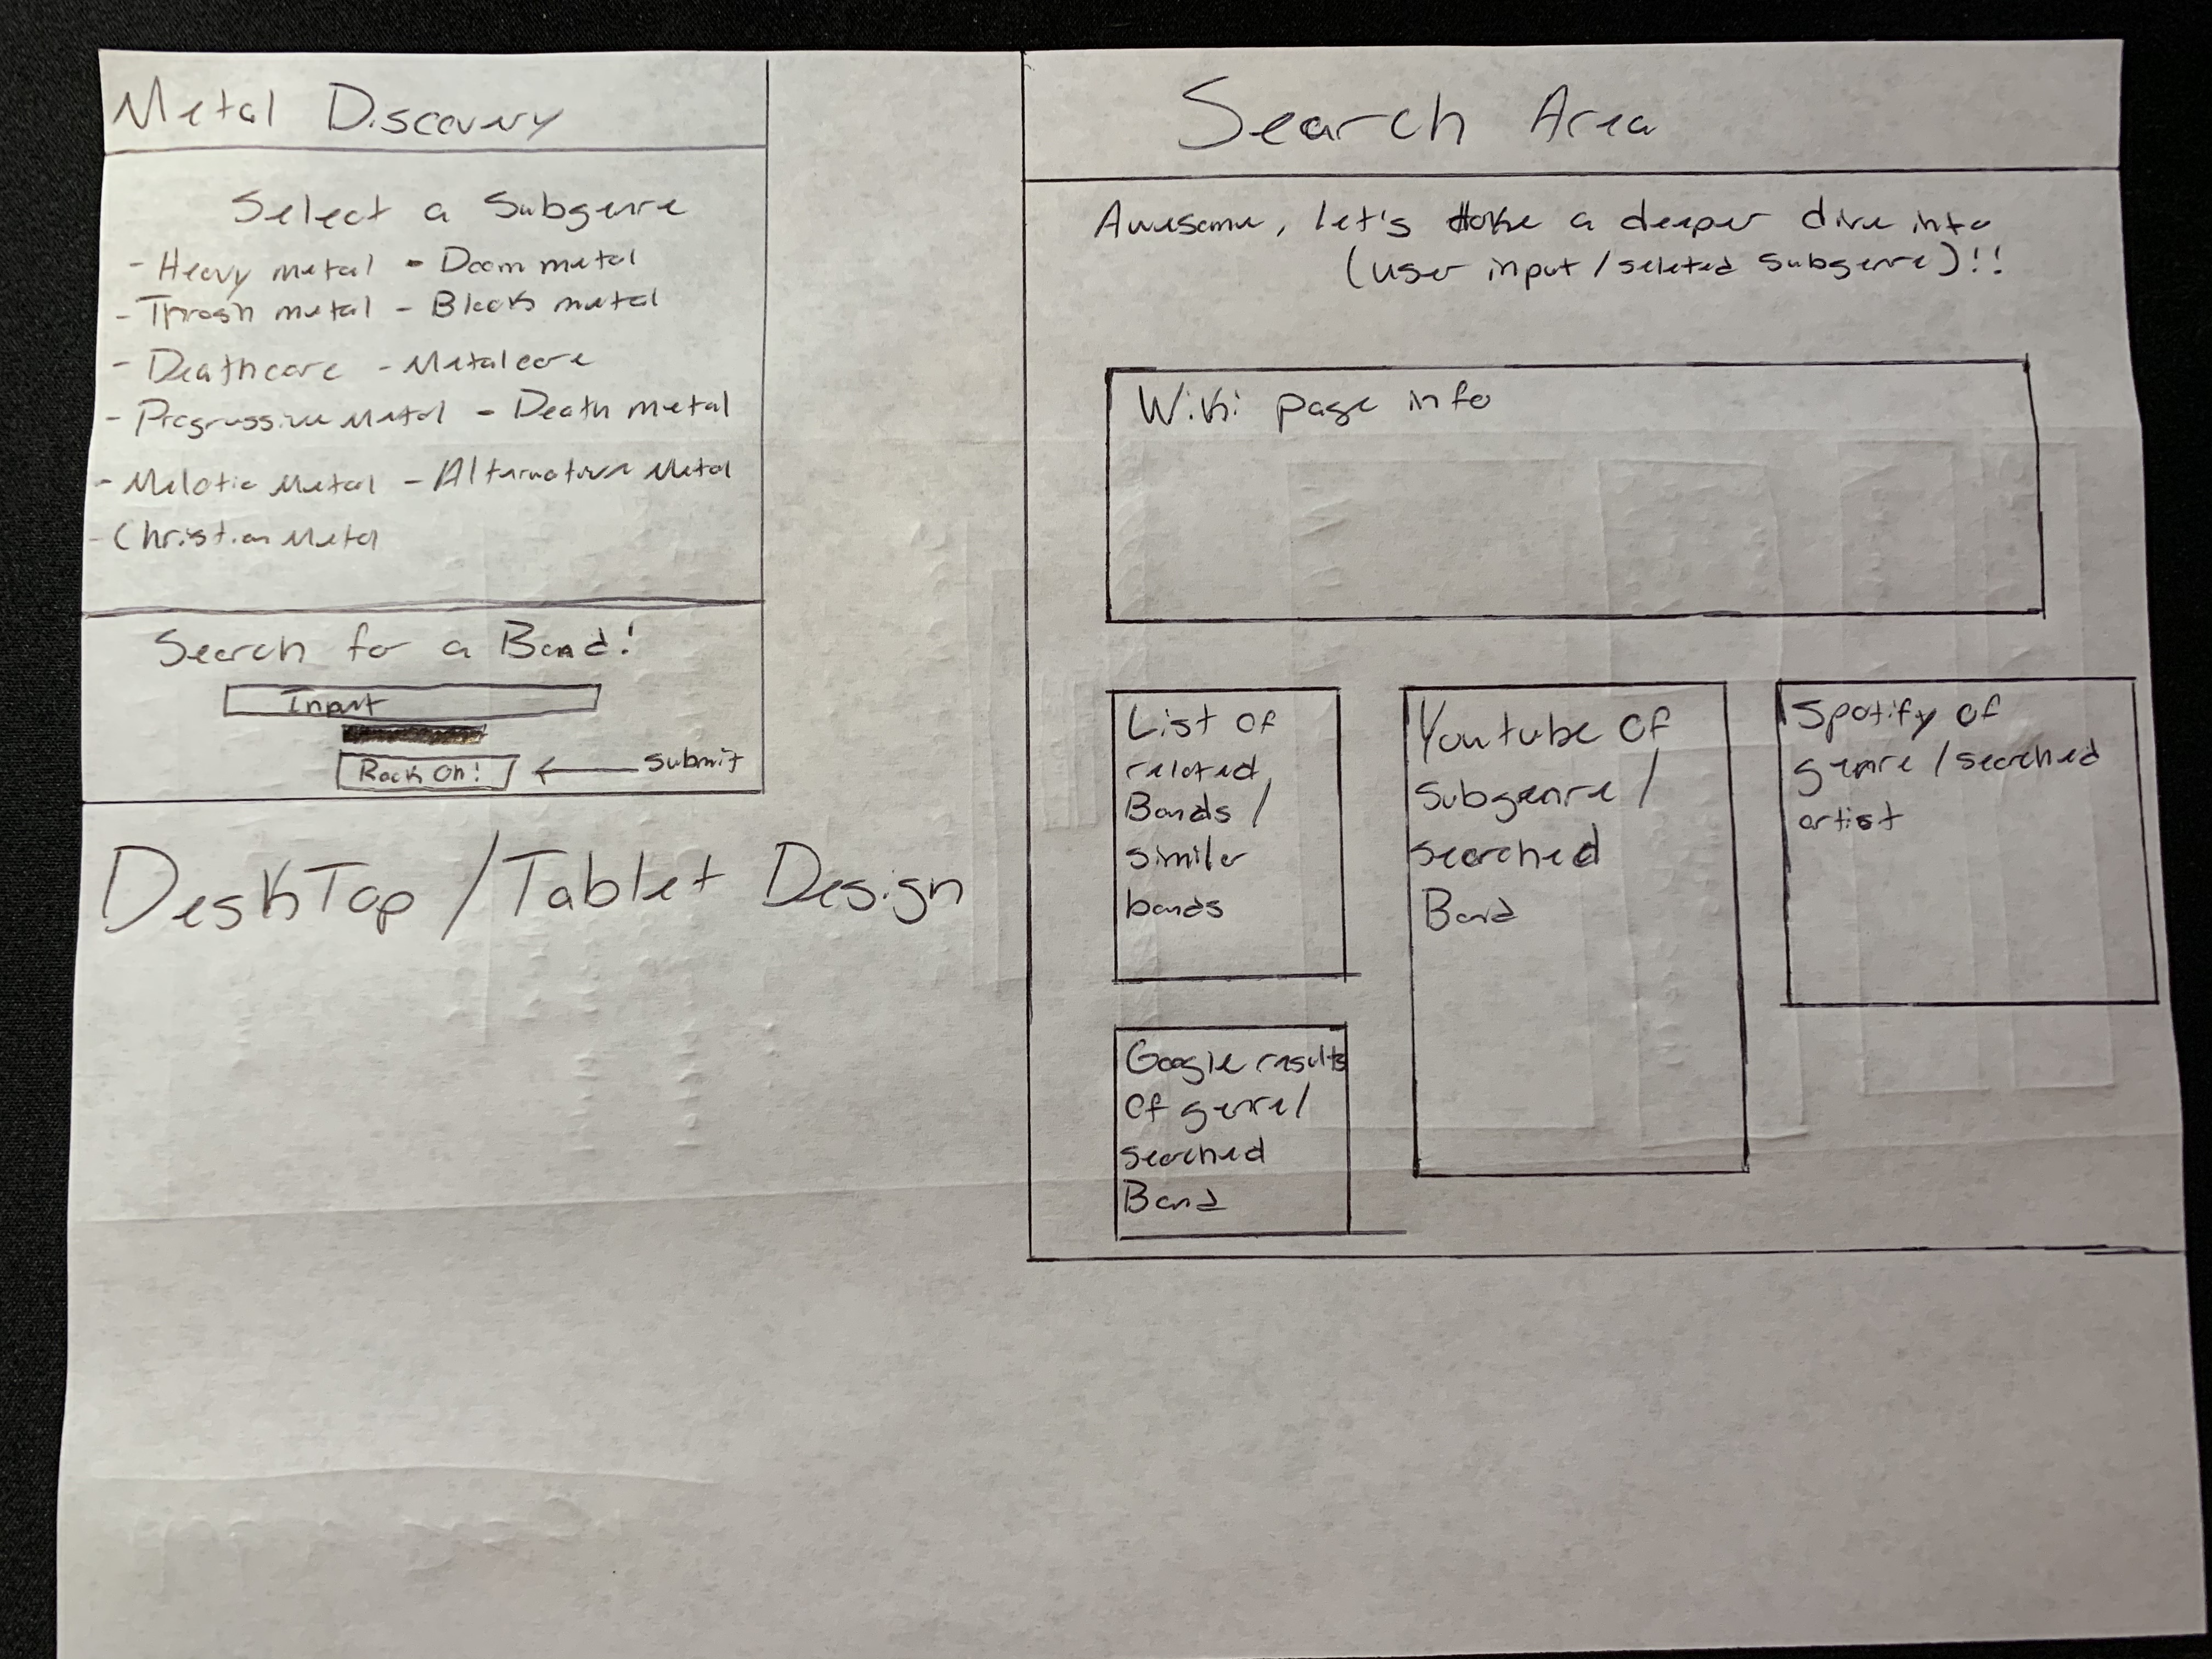 Metal Discovery
Select a Subgenre
- Heavy metal - Doom metal
- Thrash metal - Black metal
- Deathcore - Metalcore
- Progressive Metal - Death metal
- Melotic Metal - Alternative Metal
- Christian Metal
Search for a Band!
Input
Rock On! ← Submit
DeskTop / Tablet Design
Search Area
Awesome, let's take a deeper dive into
(user input / seleted subgenre)!!
Wiki page info
List of
related
Bands /
similar
bands
Google results
of genre /
searched
Band
Youtube of
subgenre /
searched
Band
Spotify of
genre / searched
artist